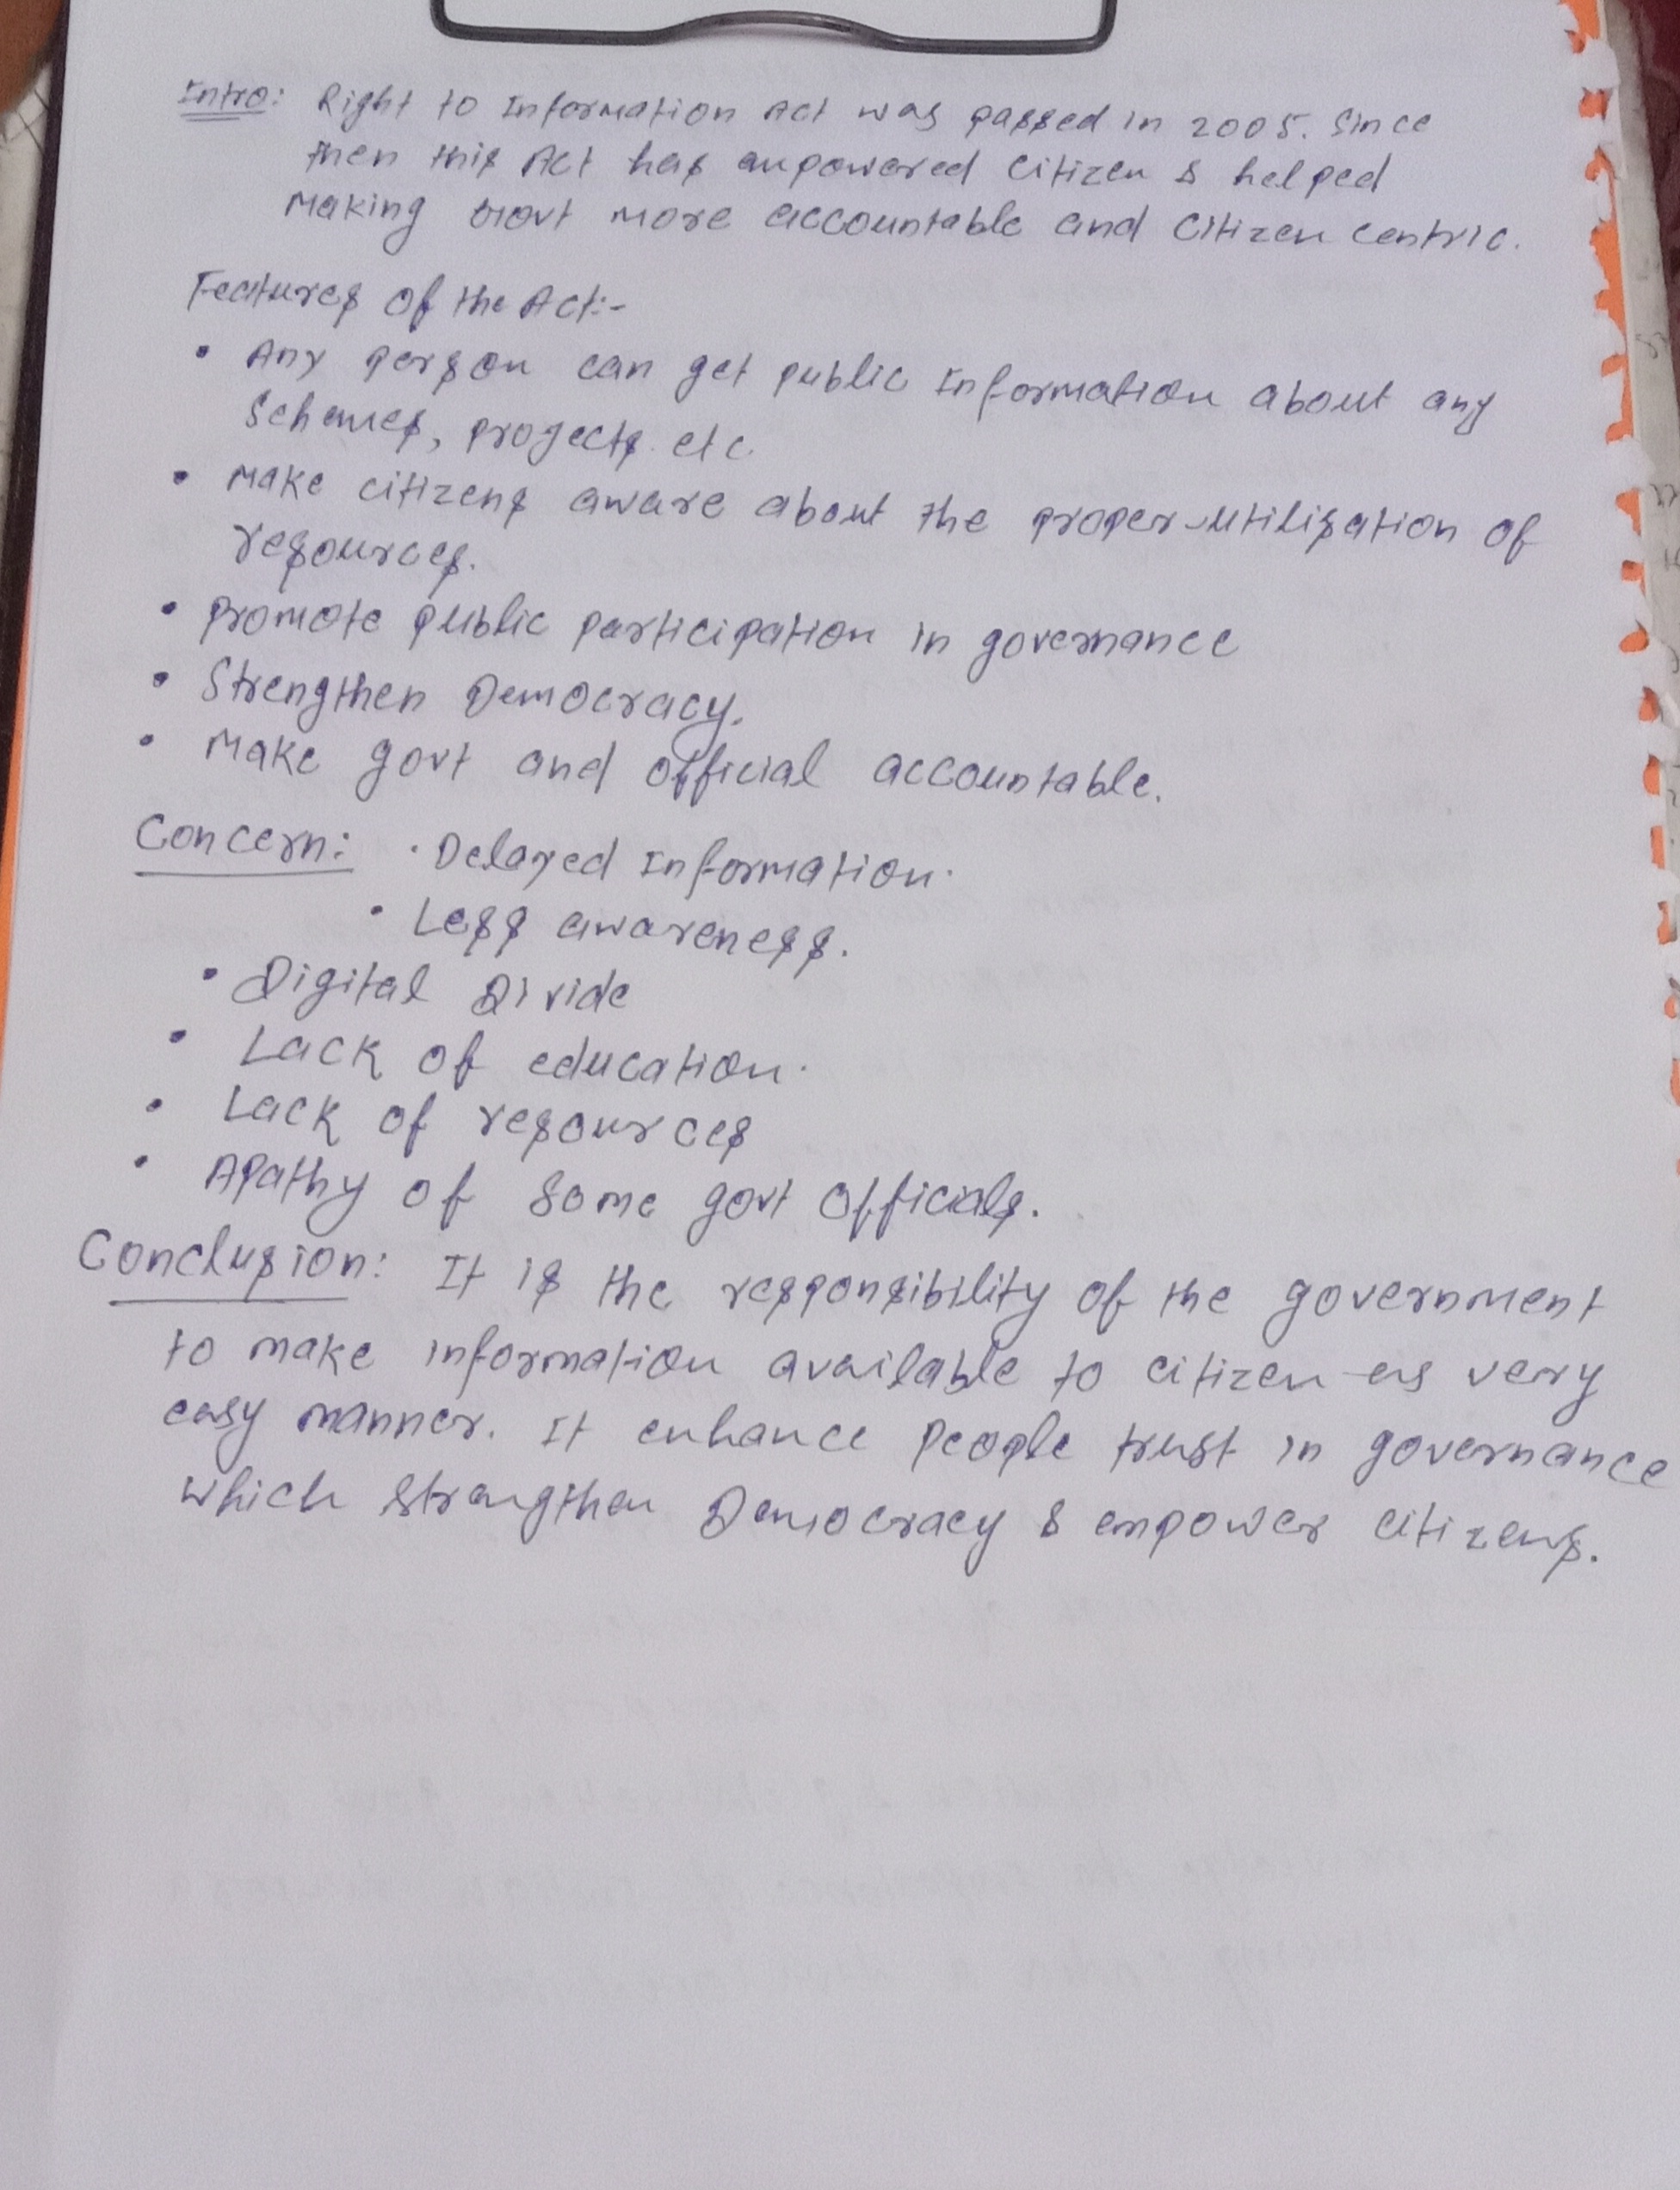 Intro: Right to Information Act was passed in 2005. Since
then this Act has empowered citizen & helped
making Govt more accountable and citizen centric.
Features of the Act:-
• Any person can get public information about any
schemes, projects etc.
• Make citizens aware about the proper utilisation of
resources.
• promote public participation in governance
• Strengthen Democracy.
• Make govt and official accountable.
Concern: • Delayed Information.
• Less awareness.
• Digital Divide
• Lack of education.
• Lack of resources
• Apathy of some govt officials.
Conclusion: It is the responsibility of the government
to make information available to citizen very
easy manner. It enhance people trust in governance
which strengthen Democracy & empower citizens.